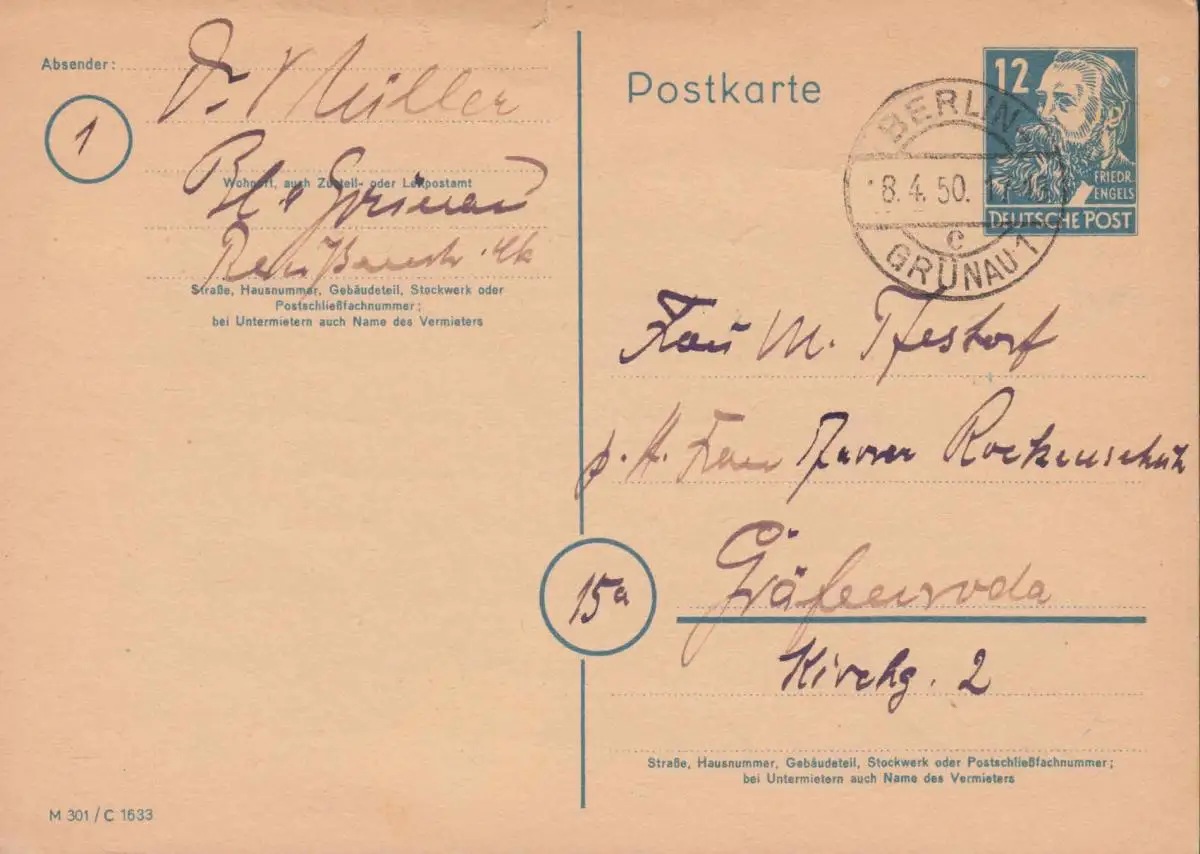 Absender:
Dr. Müller
1
Wohnort, auch Zustell- oder Leitpostamt
Bl. Grünau
Straße, Hausnummer, Gebäudeteil, Stockwerk oder
Postschließfachnummer;
bei Untermietern auch Name des Vermieters
Postkarte
12
FRIEDR.
ENGELS
DEUTSCHE POST
BERLIN
8.4.50.
c
GRÜNAU 1
Frau M.
p. A. Frau Rockenschuh
15a
Gräfenroda
Kirchg. 2
Straße, Hausnummer, Gebäudeteil, Stockwerk oder Postschließfachnummer;
bei Untermietern auch Name des Vermieters
M 301 / C 1633